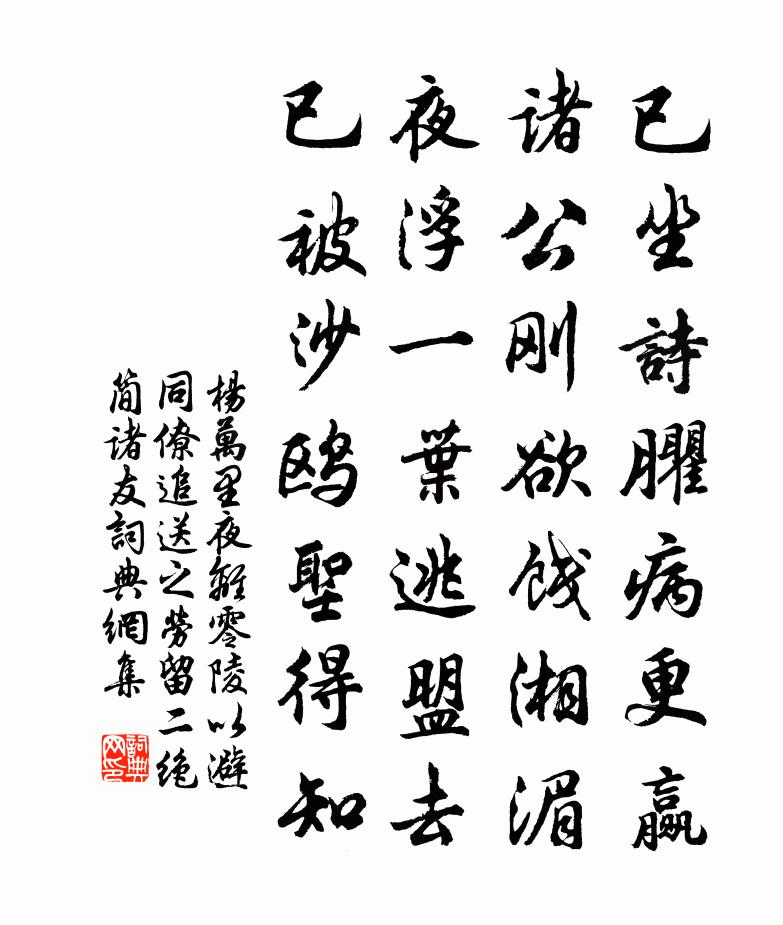 已坐詩臞病更羸
诸公刚欲饯湘湄
夜浮一葉逃盟去
已被沙鸥聖得知
楊萬里夜離零陵以避
同僚追送之勞留二絶
简诸友詞典網集
詞典网印